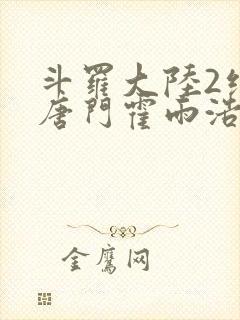 斗羅大陸2
唐門霍雨浩
金鷹网